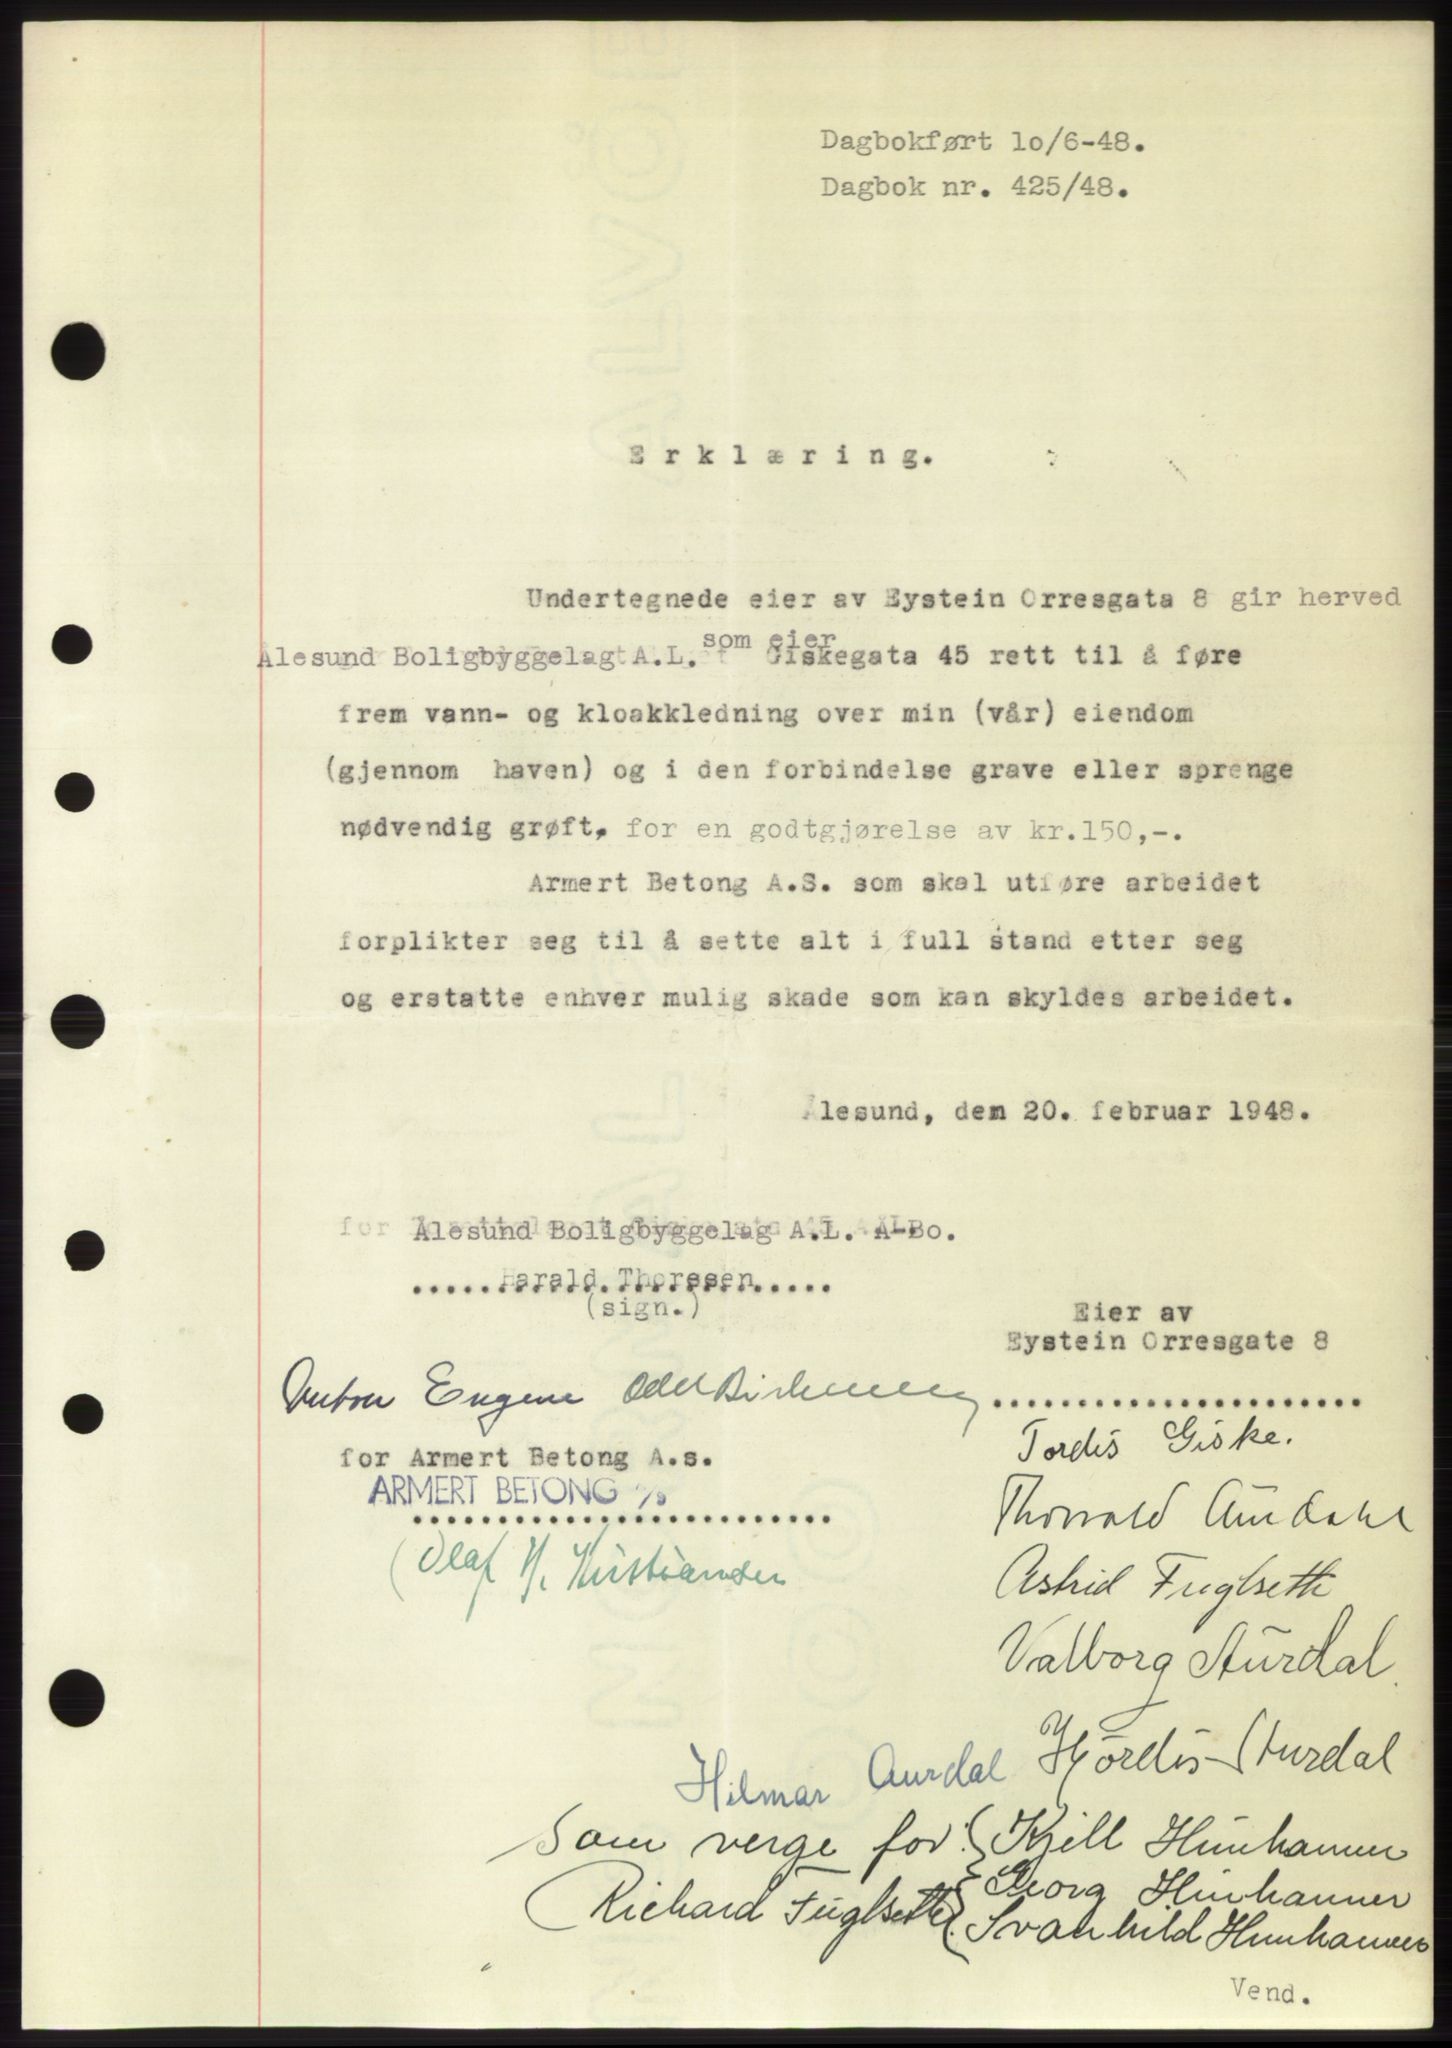 Dagbokført 1o/6-48.
Dagbok nr. 425/48.
E r k l æ r i n g.
Undertegnede eier av Eystein Orresgata 8 gir herved
Ålesund Boligbyggelag A.L. som eier Giskegata 45 rett til å føre
frem vann- og kloakkledning over min (vår) eiendom
(gjennom haven) og i den forbindelse grave eller sprenge
nødvendig grøft, for en godtgjørelse av kr.150,-.
Armert Betong A.S. som skal utføre arbeidet
forplikter seg til å sette alt i full stand etter seg
og erstatte enhver mulig skade som kan skyldes arbeidet.
Ålesund, den 20. februar 1948.
for Ålesund Boligbyggelag A.L. Å-Bo.
Harald Thoresen
(sign.)
Eier av
Eystein Orresgate 8
Anton Eugene Odd
Tordis Giske.
for Armert Betong A.s.
ARMERT BETONG A/S
Thorvald Aurdahl
(Olaf Kristiansen
Astrid Fuglseth
Valborg Aurdal.
Hjördis Aurdal
Hilmar Aurdal
Som verge for: Kjell Hunhammer
Georg Hunhammer
Richard Fuglseth Svanhild Hunhammer
Vend.